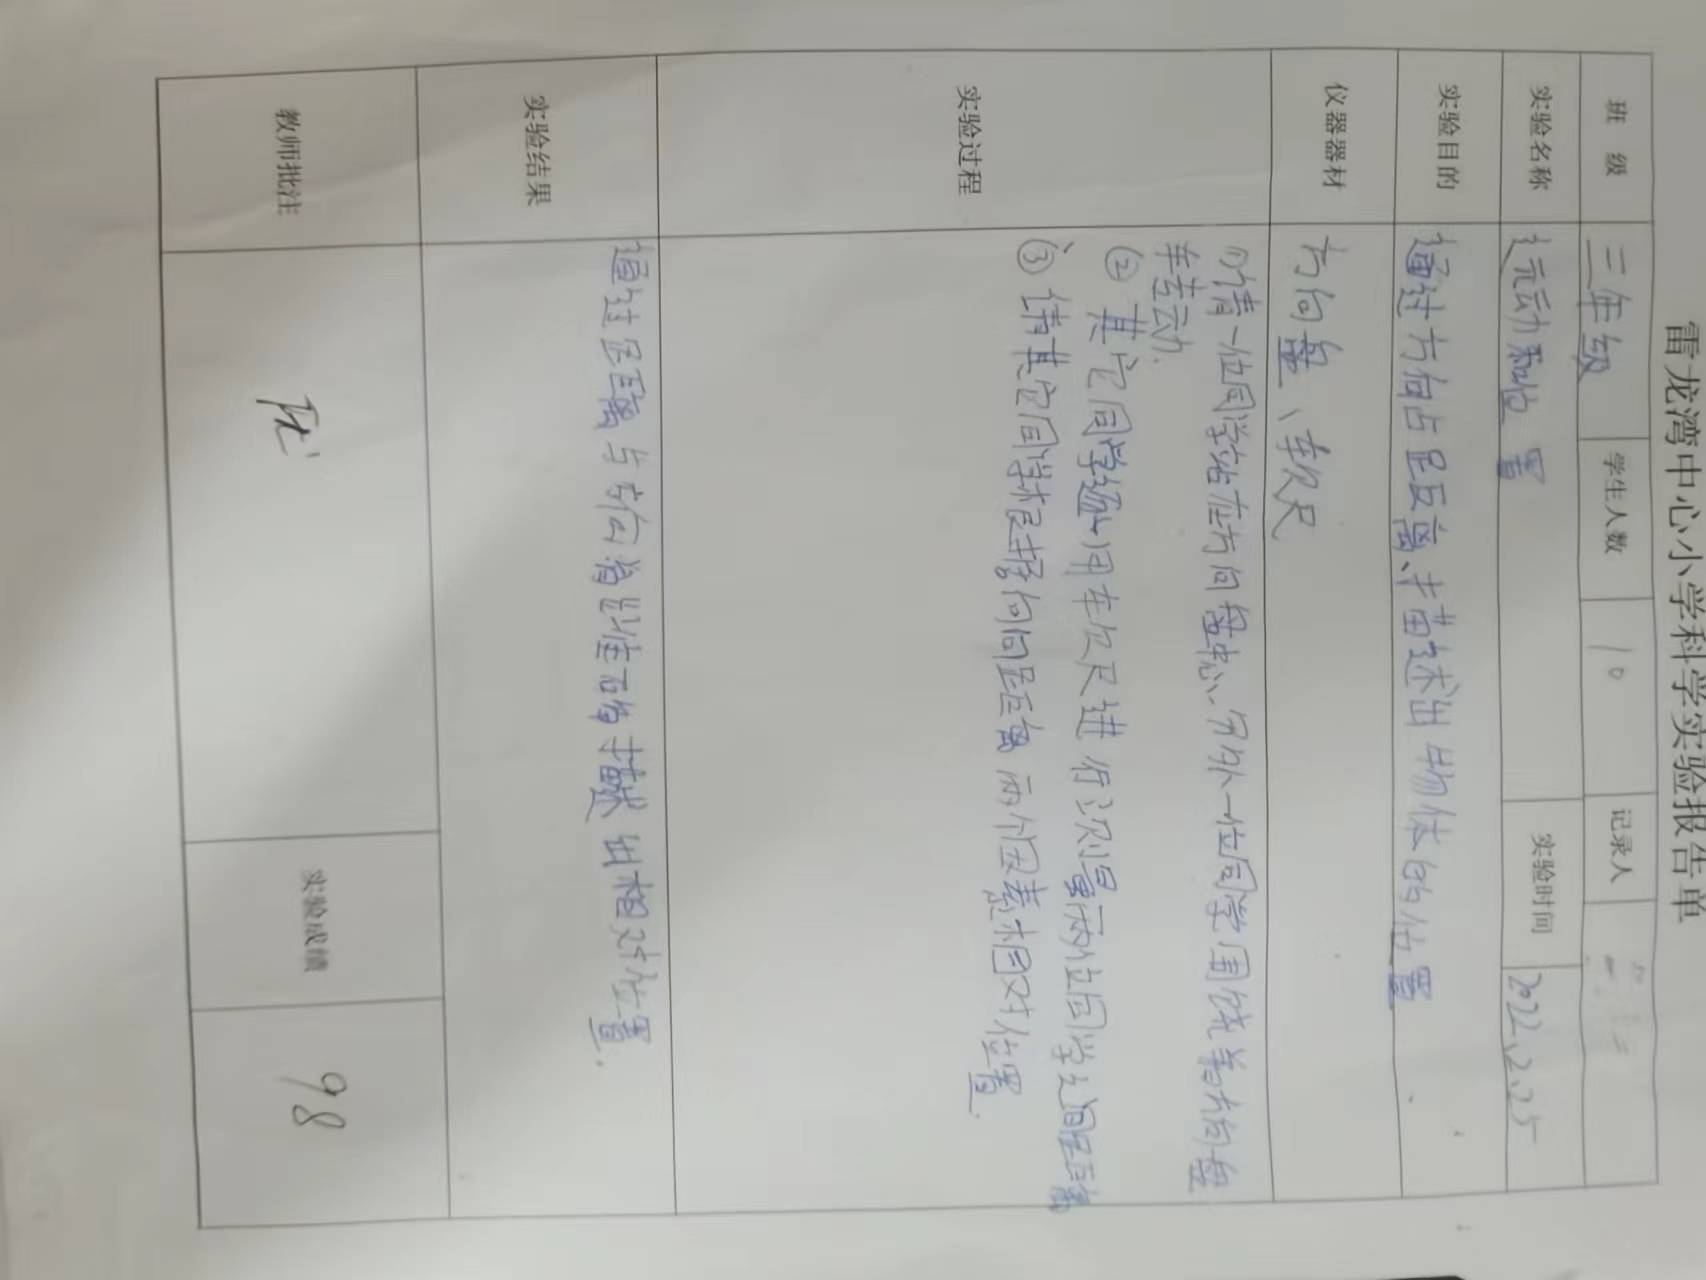 雷龙湾中心小学科学实验报告单
班 级 三年级 学生人数 10 记录人
实验名称 运动和位置 实验时间 2022.2.25
实验目的 通过方向与距离、描述出物体的位置
仪器器材 方向盘、软尺
实验过程
①请一位同学站在方向盘中心、另外一位同学围绕着方向盘
车运动.
② 其它同学 用软尺进行测量两位同学之间距离
③ 请其它同学根据方向距离两个因素相对位置.
实验结果 通过距离与方向 准确描述出相对位置.
教师批注 优 实验成绩 98